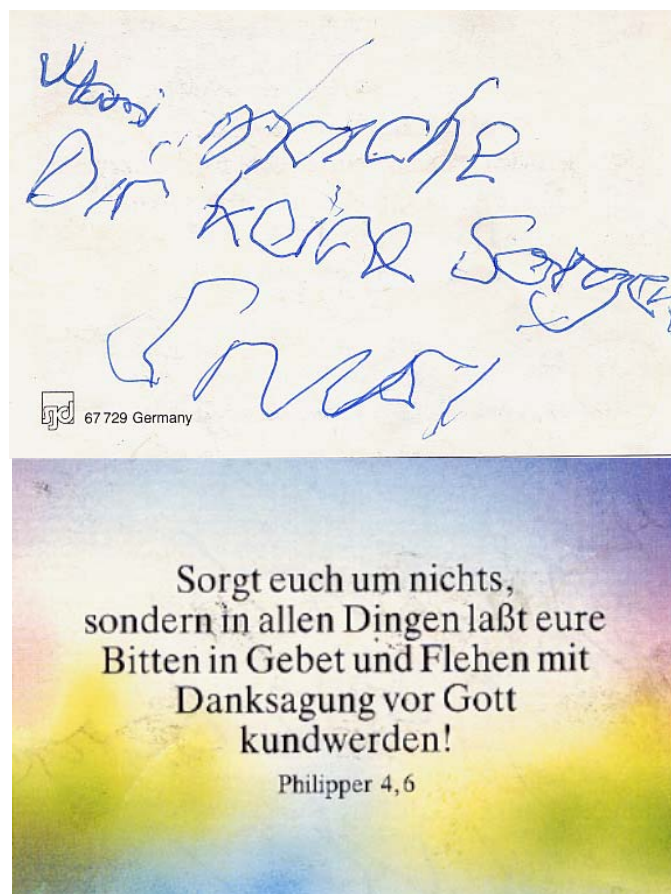 mache
Dir keine Sorgen
sjd 67 729 Germany
Sorgt euch um nichts,
sondern in allen Dingen laßt eure
Bitten in Gebet und Flehen mit
Danksagung vor Gott
kundwerden!
Philipper 4,6